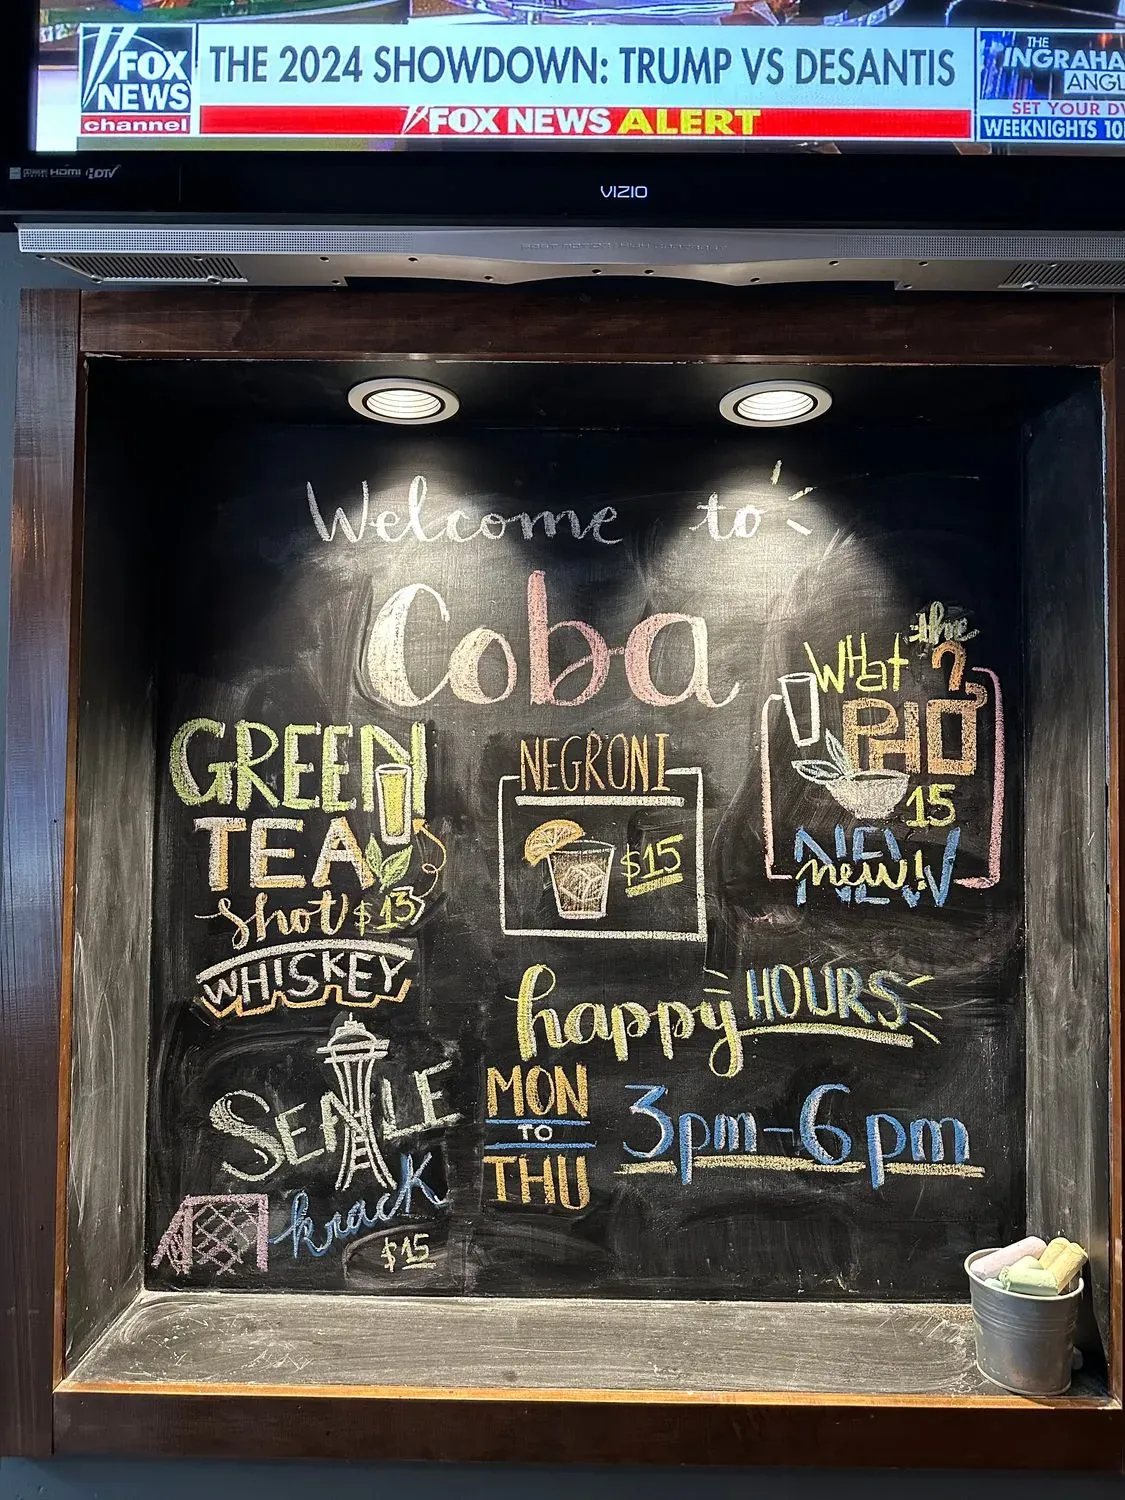 FOX
NEWS
channel
THE 2024 SHOWDOWN: TRUMP VS DESANTIS
FOX NEWS ALERT
THE
INGRAHA
ANGL
SET YOUR DV
WEEKNIGHTS 10
HDMI HDTV
VIZIO
Welcome to
Coba
GREEN
TEA
shot $13
WHISKEY
NEGRONI
$15
What the
PHO?
15
NEW
new!
happy HOURS
MON
TO
THU
3pm-6pm
SEATTLE
krack
$15